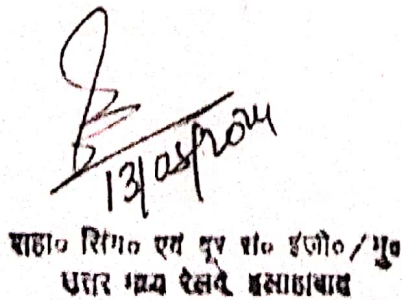 13/05/2014
सिग० एवं दूर सं० इंजी०/मु०
उत्तर मध्य रेलवे इलाहाबाद